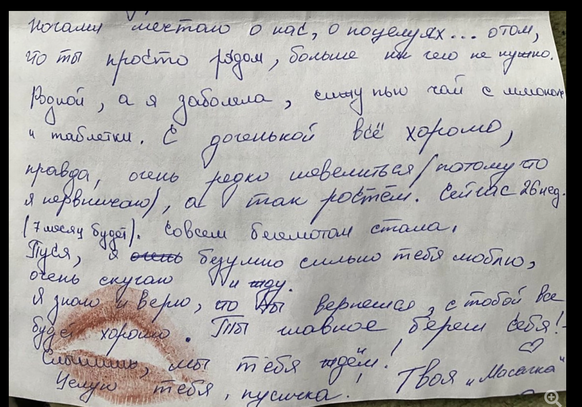 Ночами мечтаю о нас, о поцелуях... о том,
что ты просто рядом, больше ни чего не нужно.
Родной, а я заболела, сижу пью чай с лимоном
и таблетки. С доченькой всё хорошо,
правда, очень редко шевелиться (потому что
я нервничаю), а так ростём. Сейчас 26 нед.
(7 месяц будет). Совсем бегемотом стала.
Пуся, я очень безумно сильно тебя люблю,
очень скучаю и жду.
Я знаю и верю, что ты вернешся, с тобой все
будет хорошо. Ты главное береги себя!
Слышишь, мы тебя ждём!
Целую тебя, пусичка! Твоя "Масечка"